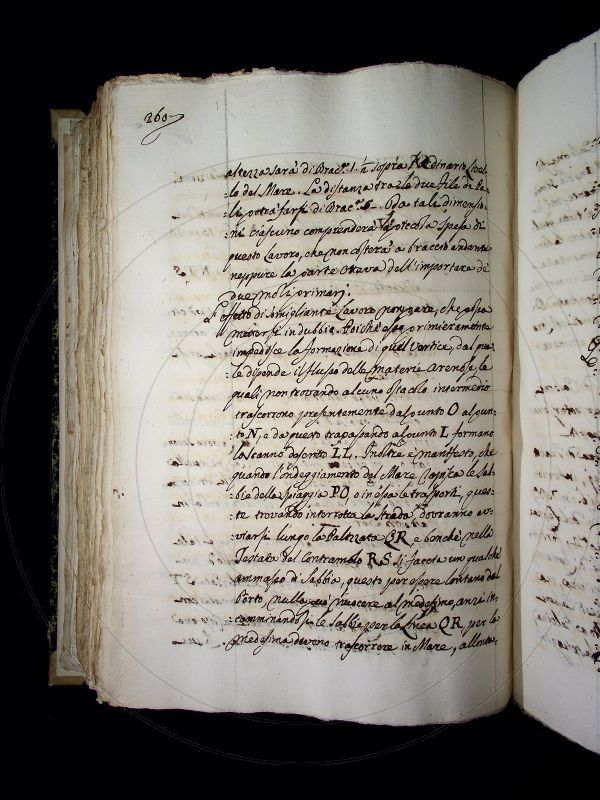 260
altezza sarà di Brac.ᵃ 1. ½ sopra l'ordinario Livel=
=lo del Mare. La distanza tra le due file di Pa=
=li potrà farsi di Brac.ᵃ 6. Da tale dimensio=
=ni ciascuno comprenderà la piccola spesa di
questo Lavoro, che non costerà a braccio andante
neppure la parte ottava dell'importare de
due moli primarj.
L'effetto di somigliante Lavoro non pare, che possa
mettersi in dubbio. Poiché esso primieramente
impedisce la formazione di quel Vertice, dal qua=
=le dipende il flusso delle materie arenose, le
quali non trovando alcuno ostacolo intermedio
trascorrono presentemente dal punto O al pun=
=to N, e da questo trapassando al punto L formano
lo scanno descritto LL. Inoltre è manifesto, che
quando l'ondeggiamento del Mare the Sab=
=bie della Spiaggia PO, o in essa le trasporti, ques=
=te trovando interrotta la strada dovranno av=
=viarsi lungo la Palizzata QR e benché nella
Testata del Contramolo RS. si faccia un qualche
ammasso di Sabbia, questo per essere lontano dal
Porto, nulla può nuocere al medesimo, anzi in=
camminandosi le Sabbie per la Linea QR, per la
medesima devono trascorrere in Mare, allonta=